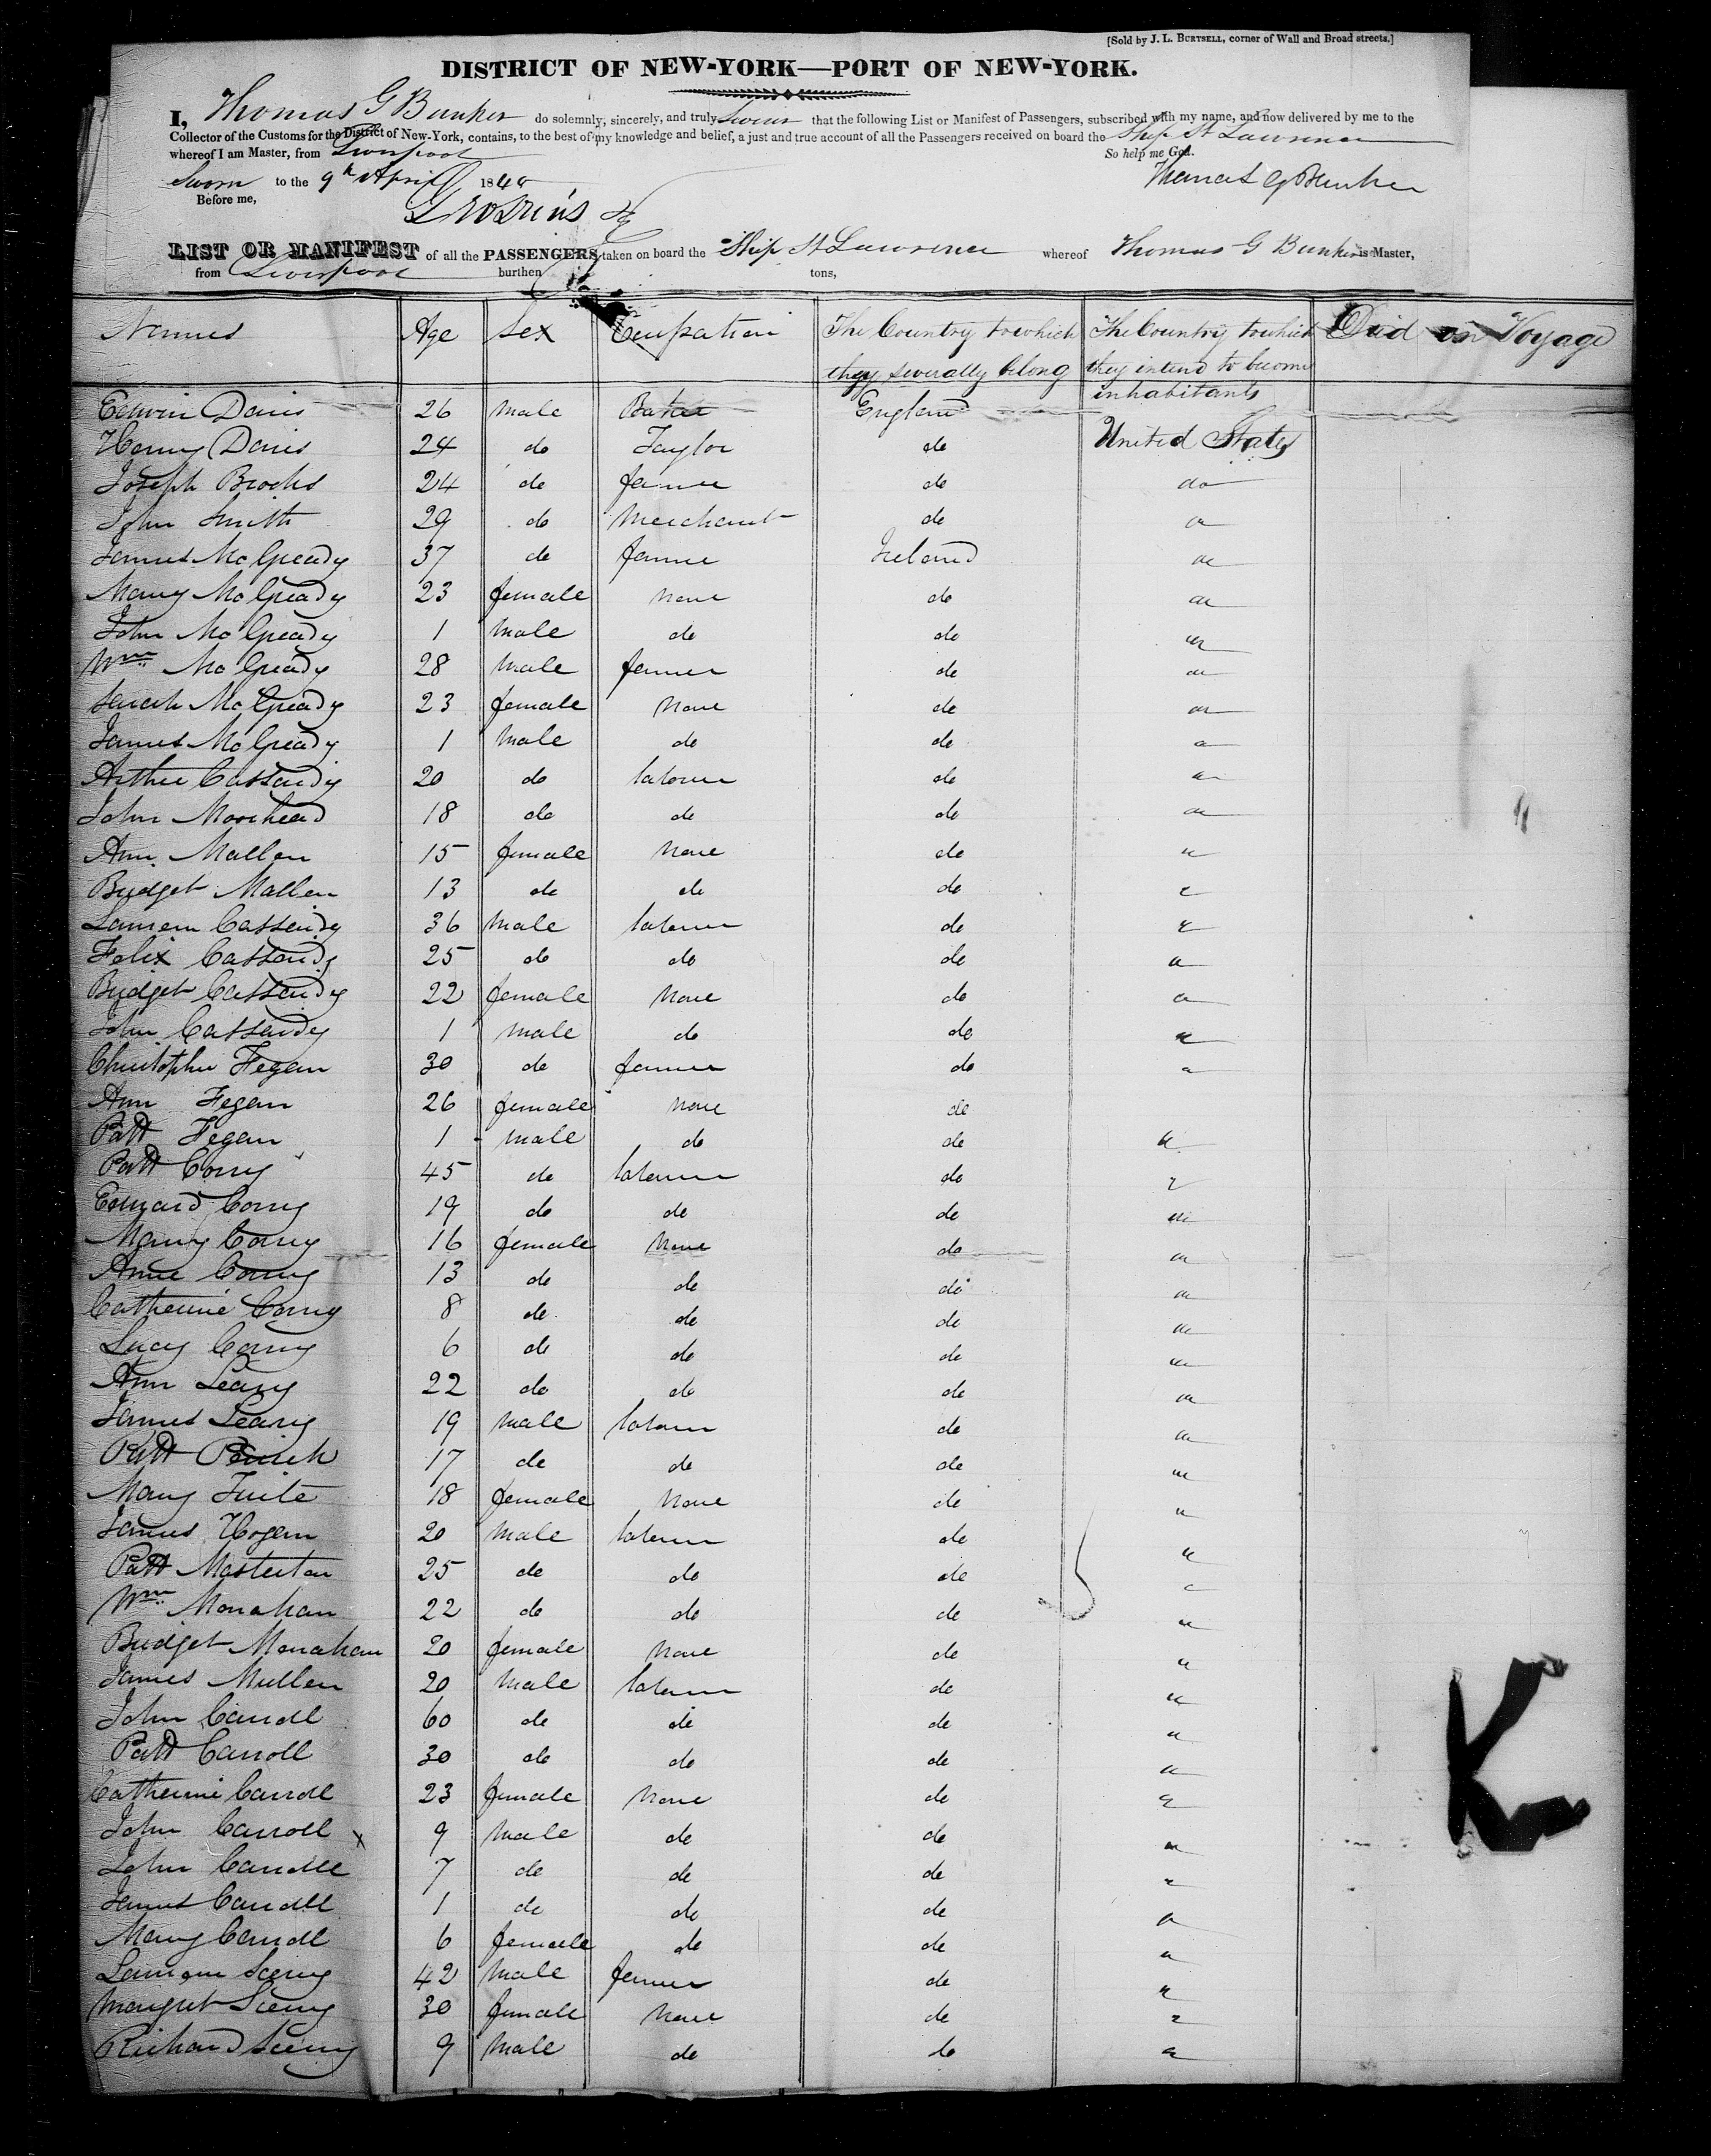 [Sold by J. L. BURTSELL, corner of Wall and Broad streets.]
DISTRICT OF NEW-YORK—PORT OF NEW-YORK.
I, Thomas G Bunker do solemnly, sincerely, and truly Swear that the following List or Manifest of Passengers, subscribed with my name, and now delivered by me to the
Collector of the Customs for the District of New-York, contains, to the best of my knowledge and belief, a just and true account of all the Passengers received on board the Ship St Lawrence
whereof I am Master, from Liverpool So help me God.
Sworn to the 9th April 184 Thomas G Bunker
Before me,
LIST OR MANIFEST of all the PASSENGERS taken on board the Ship St Lawrence whereof Thomas G Bunker is Master,
from Liverpool burthen tons,
Names Age Sex Occupation The Country to which they severally belong The Country to which they intend to become inhabitants Died on Voyage
Edwin Davis 26 male Baker England
Henry Davis 24 do Taylor do United States
Joseph Brooks 24 do farmer do do
John Smith 29 do Merchant do
James McGready 37 do farmer Ireland
Mary McGready 23 female None do
John McGready 1 Male do do
Wm McGready 28 Male farmer do
Sarah McGready 23 female None do
James McGready 1 Male do do
Arthur Cassaidy 20 do laborer do
John Moorhead 18 do do do
Ann Mallen 15 female None do
Bridget Mallen 13 do do do
Cassaidy 36 Male laborer do
Felix Cassaidy 25 do do do
Bridget Cassaidy 22 female None do
John Cassaidy 1 male do do
Christopher Fegan 30 do farmer do
Ann Fegan 26 female None do
Patt Fegan 1 male do do
Patt Corry 45 do laborer do
Edward Corry 19 do do do
Mary Corry 16 female None do
Anne Corry 13 do do do
Catherine Corry 8 do do do
Lucy Corry 6 do do do
Ann Leary 22 do do do
James Leary 19 male laborer do
Patt 17 do do do
Mary Fuite 18 female None do
James Hogan 20 Male laborer do
Patt Masterton 25 do do do
Wm Monahan 22 do do do
Bridget Monahan 20 female None do
James Mullen 20 Male laborer do
John Carroll 60 do do do
Patt Carroll 30 do do do
Catherine Carroll 23 female None do
John Carroll x 9 Male do do
John Carroll 7 do do do
James Carroll 1 do do do
Mary Carroll 6 female do do
42 Male farmer do
Margret 30 female None do
Richard 9 Male do do